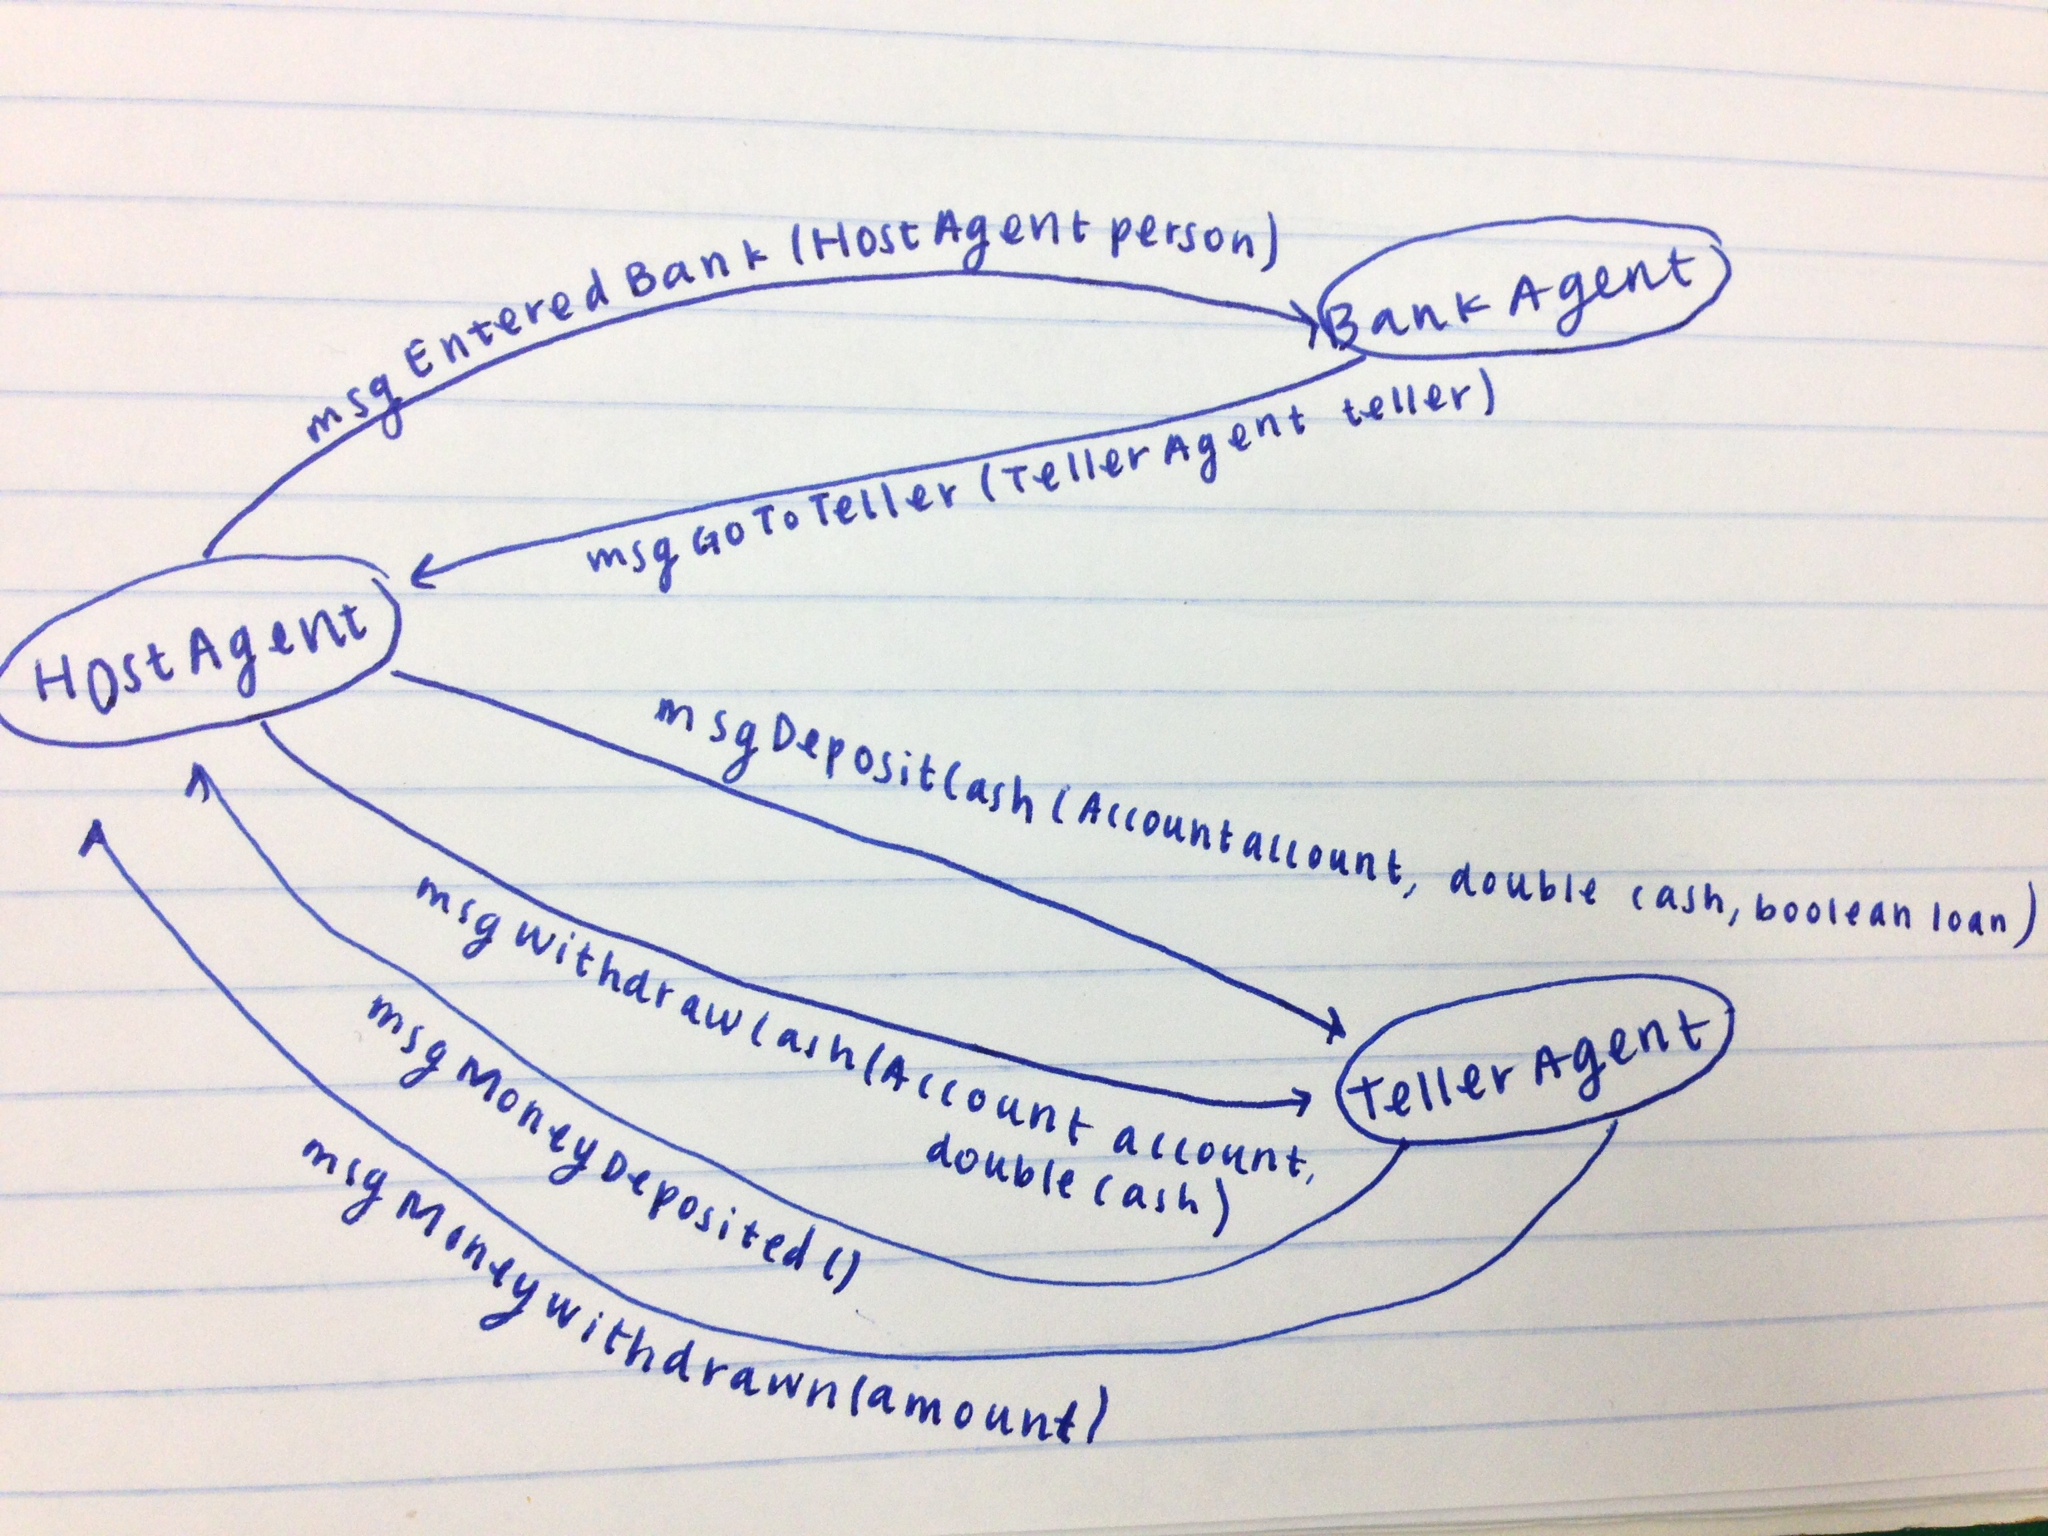 msgEnteredBank(HostAgent person)
BankAgent
msgGoToTeller(TellerAgent teller)
HostAgent
msgDepositCash(Account account, double cash, boolean loan)
msgWithdrawCash(Account account,
double cash)
TellerAgent
msgMoneyDeposited()
msgMoneyWithdrawn(amount)